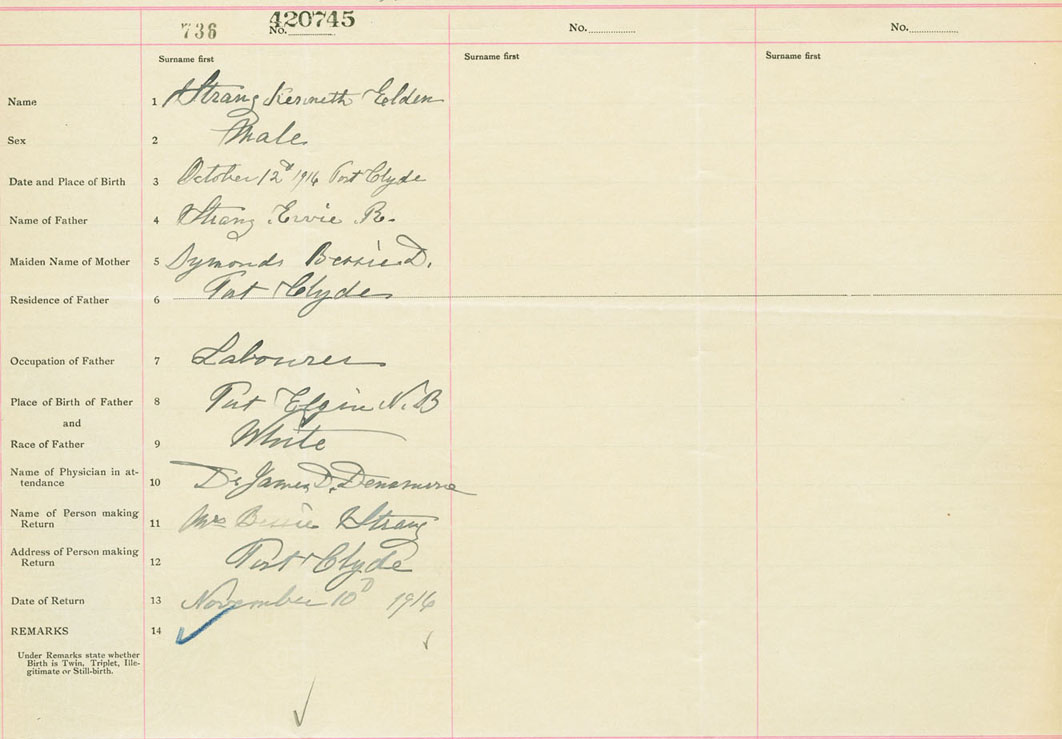 736
420745
No.
No.
No.
Surname first
Surname first
Surname first
Name 1 Strang Kenneth Elden
Sex 2 Male
Date and Place of Birth 3 October 12d 1916 Port Clyde
Name of Father 4 Strang Ervie R.
Maiden Name of Mother 5 Symonds Bessie D.
Residence of Father 6 Port Clyde
Occupation of Father 7 Labourer
Place of Birth of Father 8 Port Elgin N.B
and
Race of Father 9 White
Name of Physician in at-
tendance 10 Dr James D. Densmore
Name of Person making
Return 11 Mrs Bessie Strang
Address of Person making
Return 12 Port Clyde
Date of Return 13 November 10D 1916
REMARKS 14
Under Remarks state whether
Birth is Twin, Triplet, Ille-
gitimate or Still-birth.